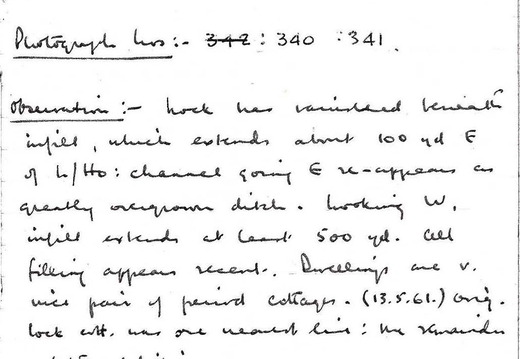 Photograph Nos:- 342 : 340 : 341.
Observation:- Lock has vanished beneath
infill, which extends about 100 yd E
of L/Ho: channel going E re-appears as
greatly overgrown ditch. Looking W,
infill extends at least 500 yd. All
filling appears recent. Dwellings are v.
nice pair of period cottages. (13.5.61.) Orig.
lock cott. was one nearest line: the remainder